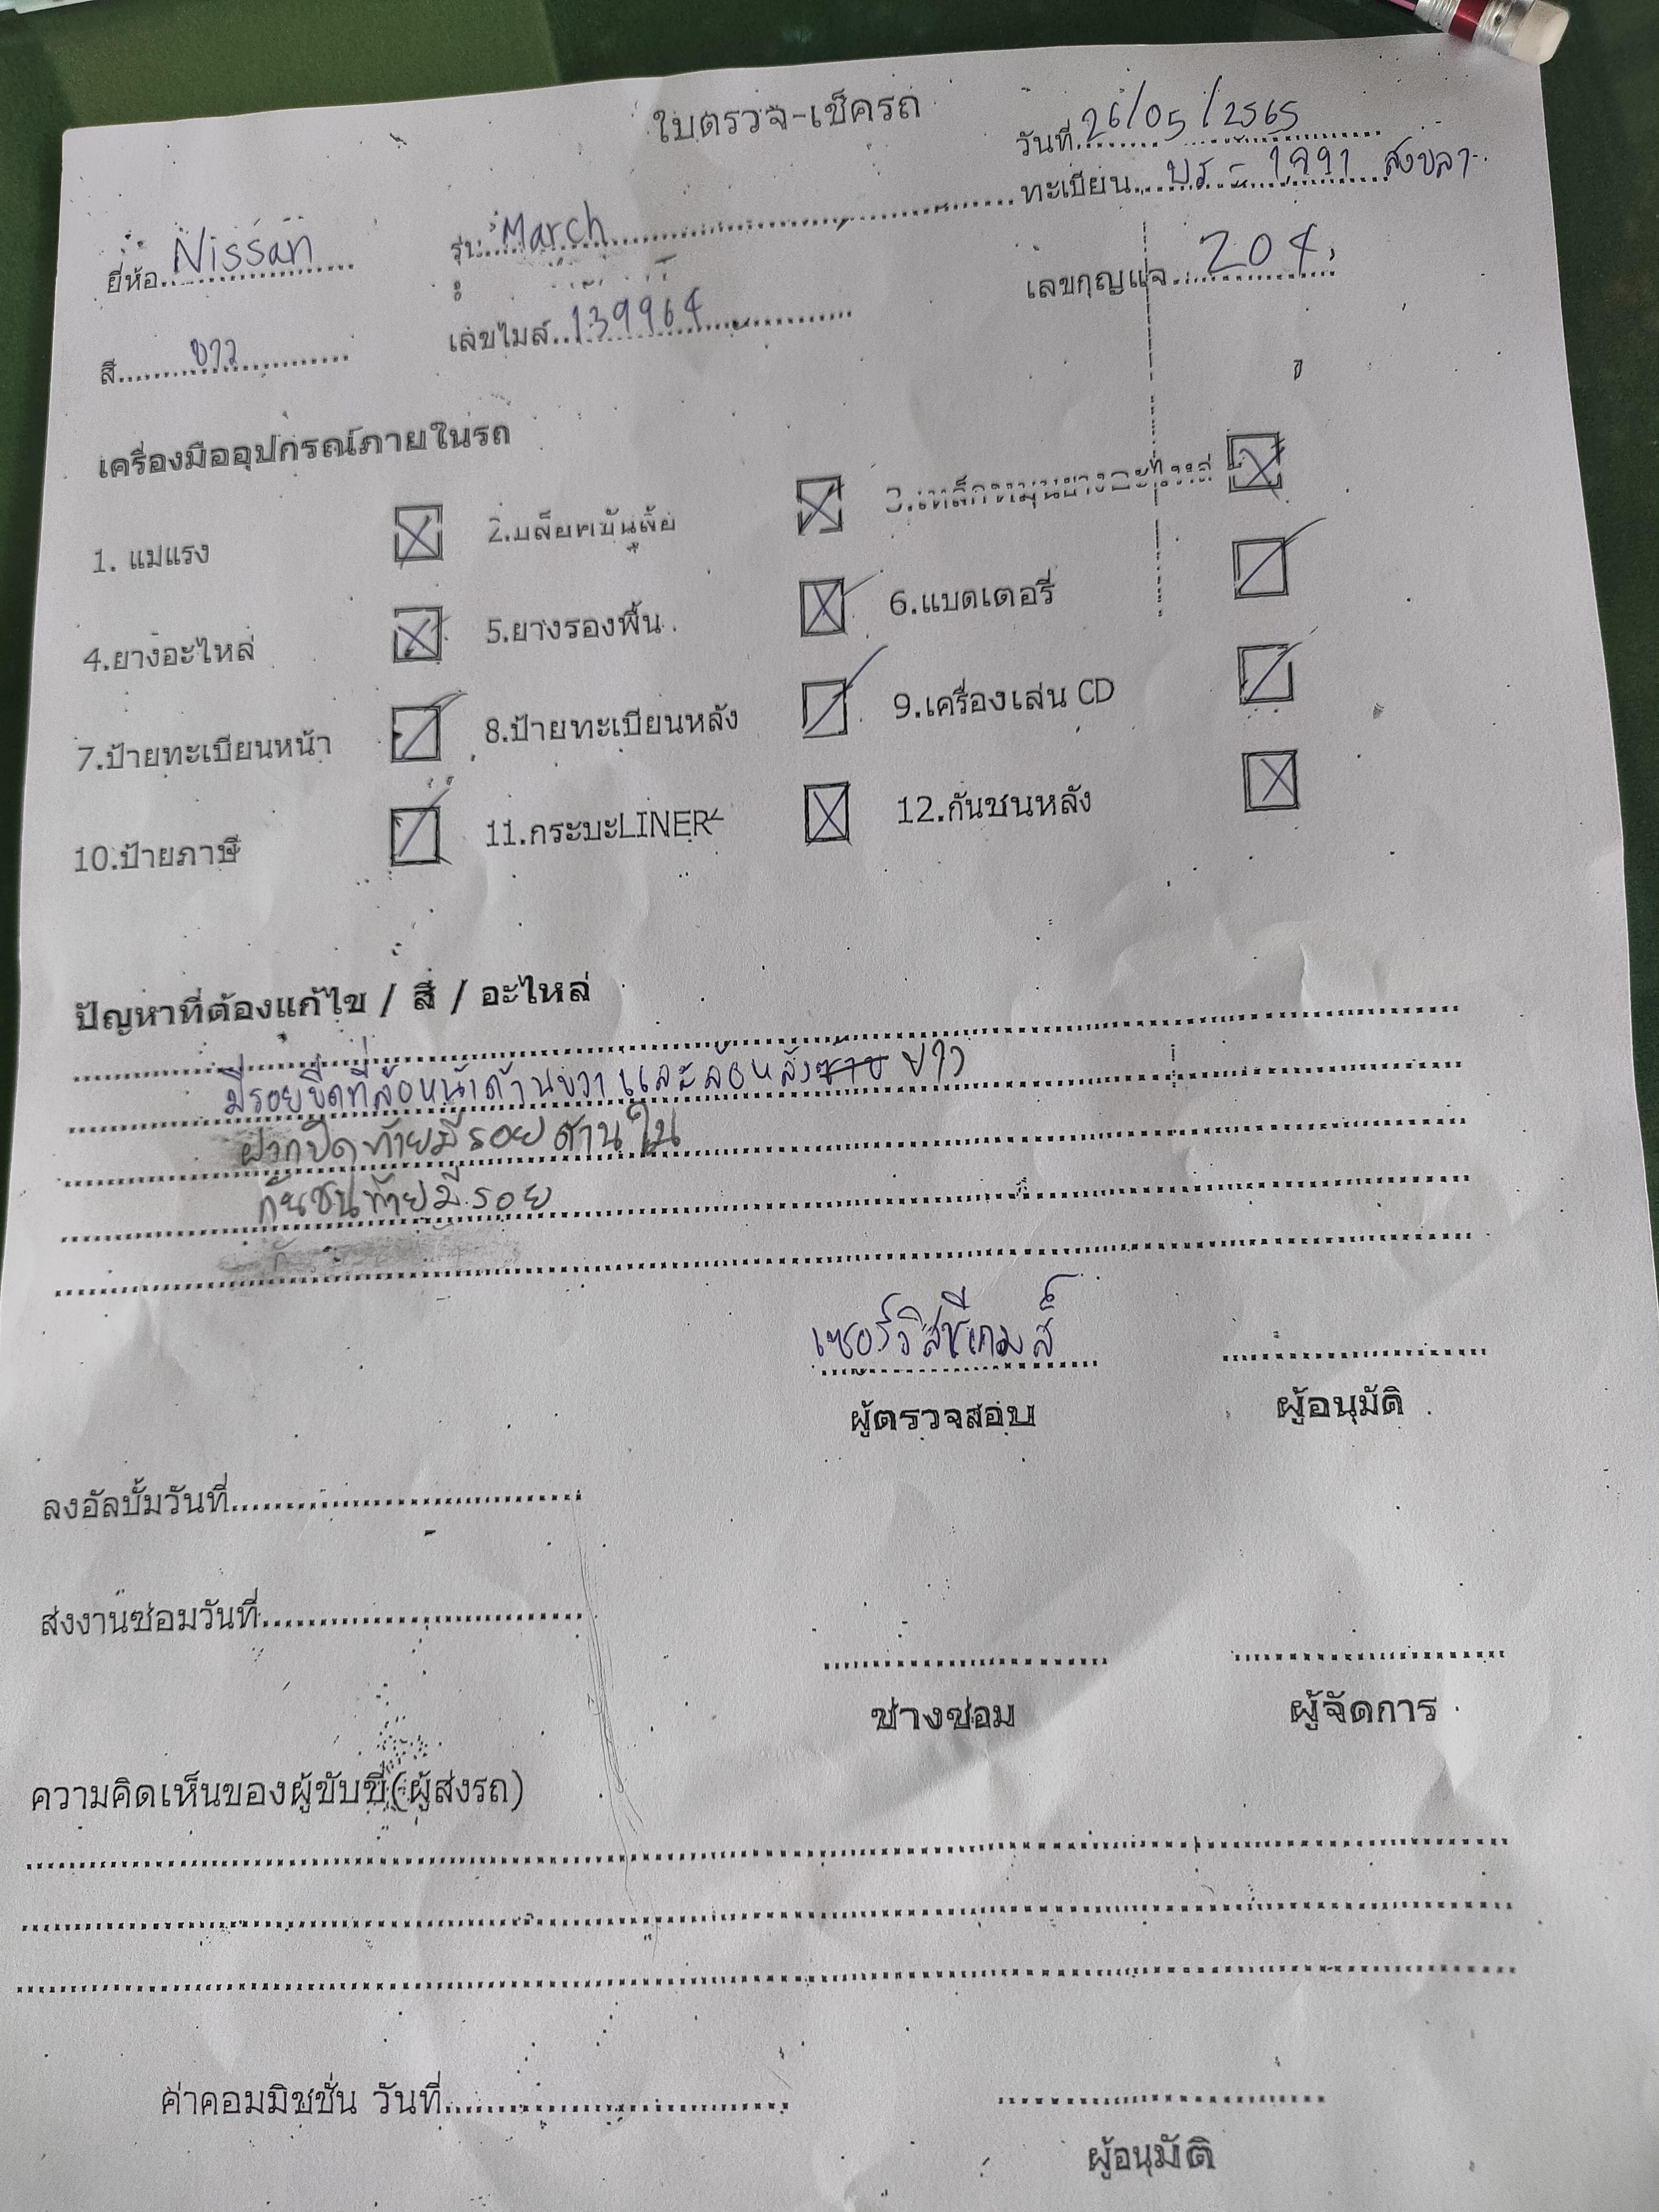 ใบตรวจ-เช็ครถ
วันที่ 26/05/2565
ทะเบียน บร - 1991 สงขลา
ยี่ห้อ Nissan รุ่น March
สี ขาว เลขไมล์ 139964 เลขกุญแจ 204
เครื่องมืออุปกรณ์ภายในรถ
1. แม่แรง 2.บล็อคขันล้อ 3.เหล็กหมุนยางอะไหล่
4.ยางอะไหล่ 5.ยางรองพื้น 6.แบตเตอรี่
7.ป้ายทะเบียนหน้า 8.ป้ายทะเบียนหลัง 9.เครื่องเล่น CD
10.ป้ายภาษี 11.กระบะLINER 12.กันชนหลัง
ปัญหาที่ต้องแก้ไข / สี / อะไหล่
มีรอยขีดที่ล้อหน้าด้านขวา และล้อหลังซ้าย ขวา
ฝากปิดท้ายมีรอยด้านใน
กันชนท้ายมีรอย
ผู้ตรวจสอบ ผู้อนุมัติ
ลงอัลบั้มวันที่
ส่งงานซ่อมวันที่
ช่างซ่อม ผู้จัดการ
ความคิดเห็นของผู้ขับขี่(ผู้ส่งรถ)
ค่าคอมมิชชั่น วันที่
ผู้อนุมัติ